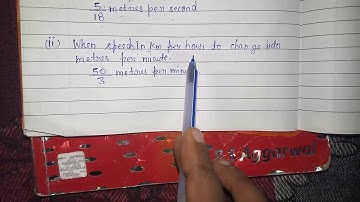 5/18 metres per second
(ii) When speed In Km per hour to change into
metres per minute.
50/3 metres per minu
Aggarwal